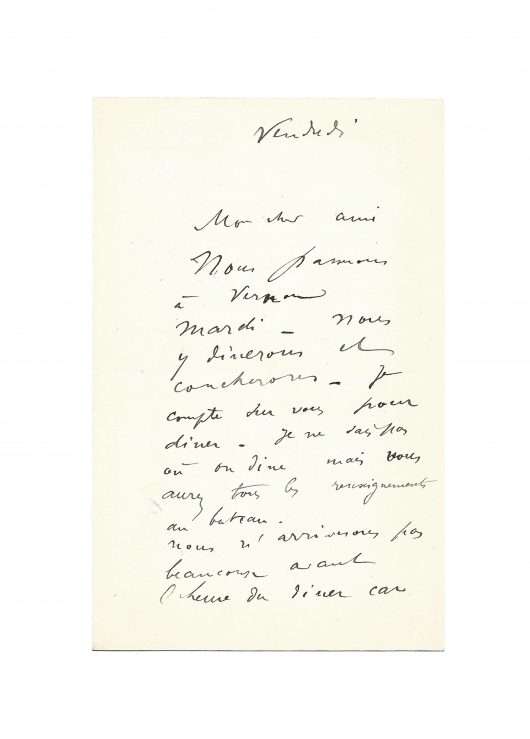 Vendredi
Mon cher ami
Nous passerons
à Vernon
mardi – nous
y dinerons et
coucherons – Je
compte sur vous pour
diner – Je ne sais pas
où on dine mais vous
aurez tous les renseignements
au bateau.
nous n'arriverons pas
beaucoup avant
l'heure du diner car